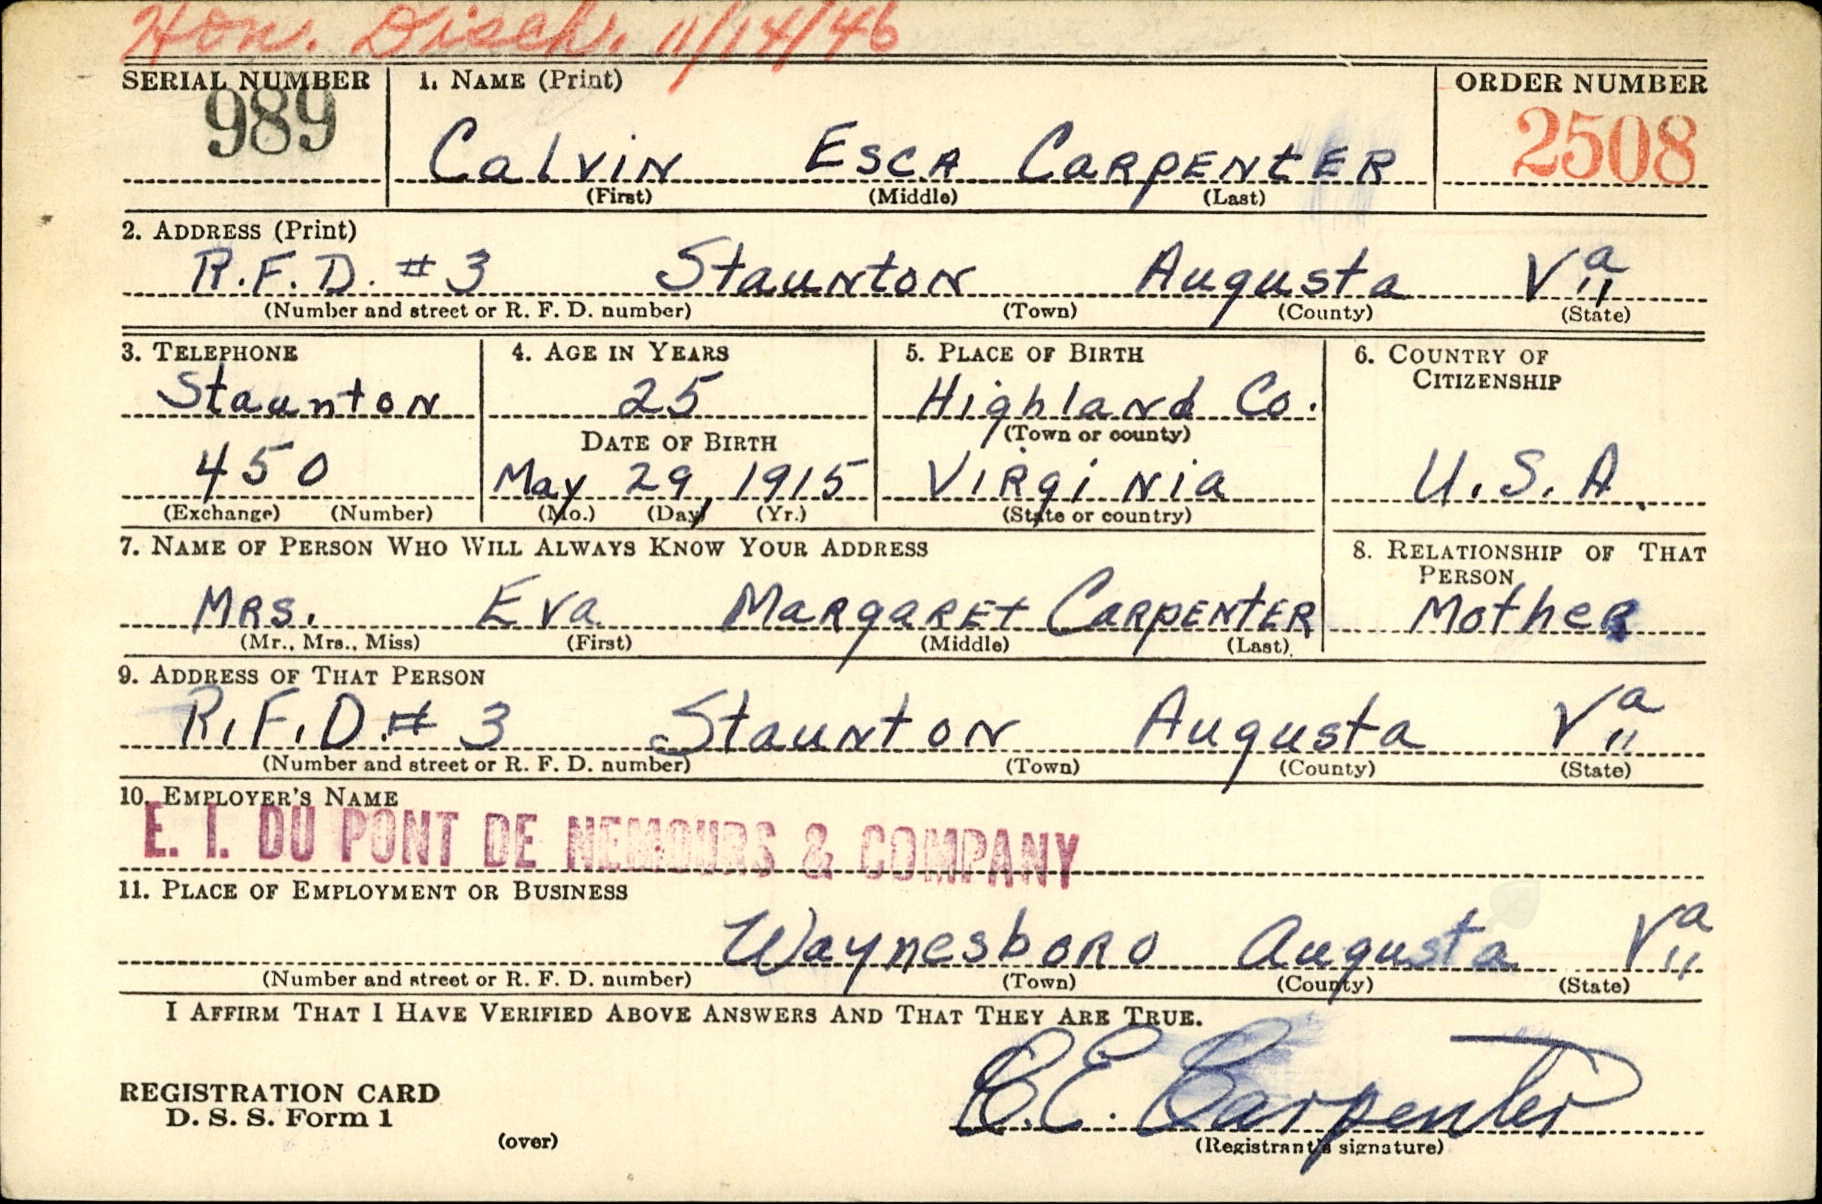 Hon. Disch. 11/14/46
SERIAL NUMBER 1. NAME (Print) ORDER NUMBER
989 Calvin Esca Carpenter 2508
(First) (Middle) (Last)
2. ADDRESS (Print)
R.F.D. #3 Staunton Augusta Va
(Number and street or R. F. D. number) (Town) (County) (State)
3. TELEPHONE 4. AGE IN YEARS 5. PLACE OF BIRTH 6. COUNTRY OF CITIZENSHIP
Staunton 25 Highland Co.
DATE OF BIRTH (Town or county)
450 May 29, 1915 Virginia U.S.A.
(Exchange) (Number) (Mo.) (Day) (Yr.) (State or country)
7. NAME OF PERSON WHO WILL ALWAYS KNOW YOUR ADDRESS 8. RELATIONSHIP OF THAT PERSON
Mrs. Eva Margaret Carpenter Mother
(Mr., Mrs., Miss) (First) (Middle) (Last)
9. ADDRESS OF THAT PERSON
R.F.D. # 3 Staunton Augusta Va
(Number and street or R. F. D. number) (Town) (County) (State)
10. EMPLOYER'S NAME
E. I. DU PONT DE NEMOURS & COMPANY
11. PLACE OF EMPLOYMENT OR BUSINESS
Waynesboro Augusta Va
(Number and street or R. F. D. number) (Town) (County) (State)
I AFFIRM THAT I HAVE VERIFIED ABOVE ANSWERS AND THAT THEY ARE TRUE.
REGISTRATION CARD
D. S. S. Form 1
C. E. Carpenter
(over) (Registrant's signature)